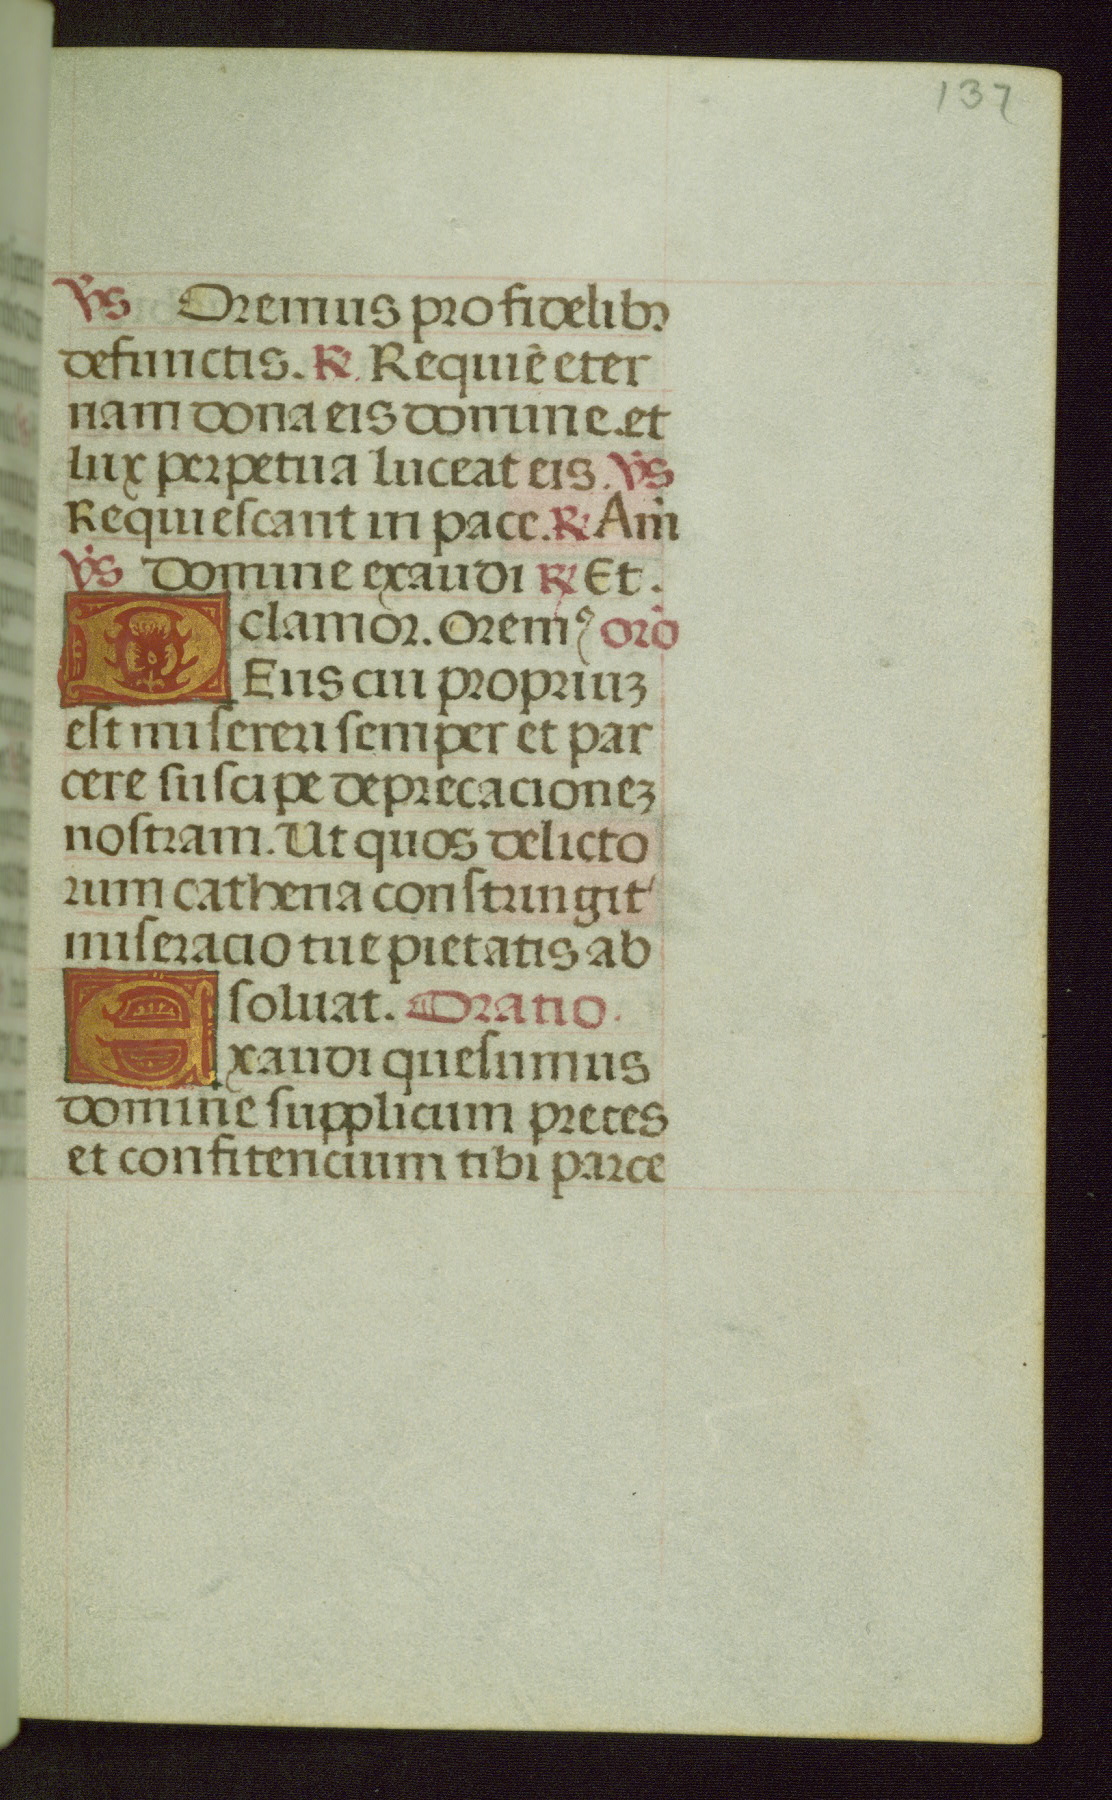 137
V̇s Oremus pro fidelibꝫ
defunctis. ℟. Requiē eter
nam dona eis domine. et
lux perpetua luceat eis. V̇s
Requiescant in pace. ℟ Am̄
V̇s Domine exaudi ℟ Et.
clamor. Oremꝰ orō
DEus cui propriuꝫ
est misereri semper et par
cere suscipe deprecacioneꝫ
nostram. Ut quos delicto
rum cathena constringit
miseracio tue pietatis ab
soluat. Oratio.
Exaudi quesumus
domine supplicum preces
et confitencium tibi parce